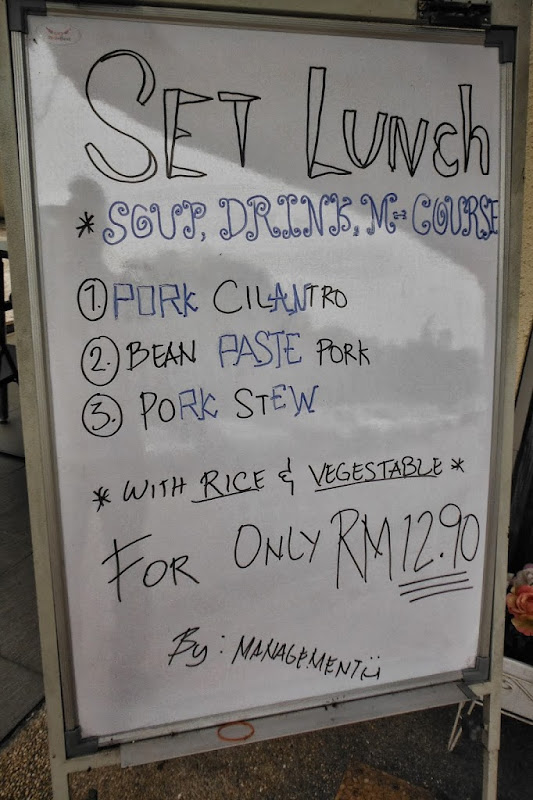 SET LUNCh
* SOUP, DRINK, M- COURSE
1. PORK CILANTRO
2. BEAN PASTE PORK
3. PORK STEW
* WITH RICE & VEGESTABLE *
FOR ONLY RM12.90
By: MANAGEMENT